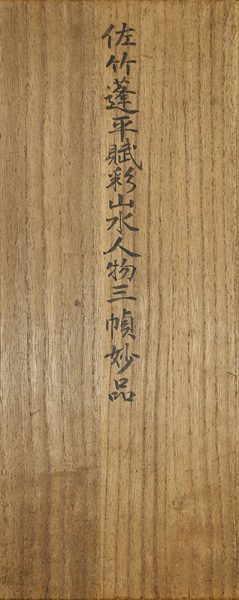 佐竹蓬平賦彩山水人物三幀妙品